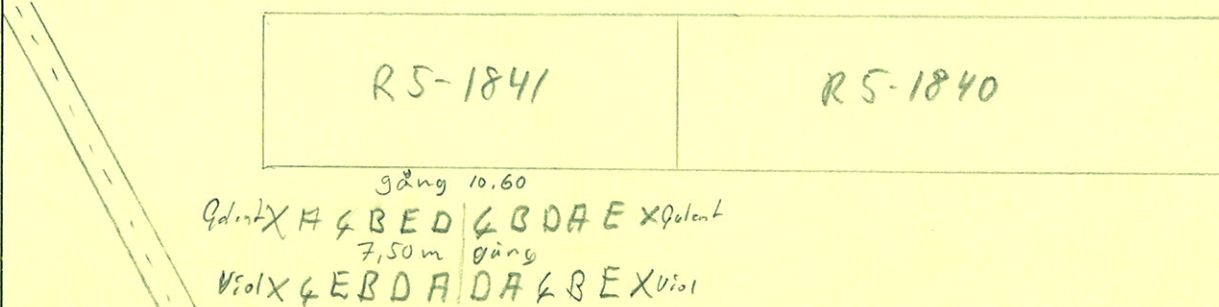 R 5-1841 R 5-1840
gång 10.60
Galant X A C B E D | C B D A E X Galant
7,50 m | gång
Viol X C E B D A | D A C B E X Viol